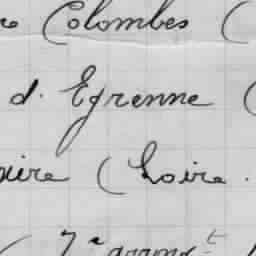 Colombes (
d. Egrenne (
aire (Loire.
7e arrondt